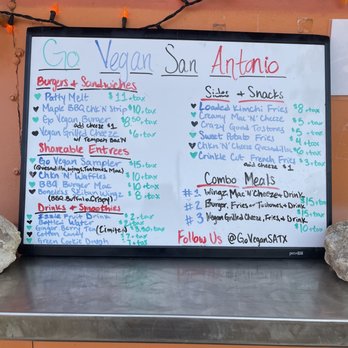 Go Vegan San Antonio
Burgers & Sandwiches
Patty Melt $11+tax
Maple BBQ Chk'N Strip $10+tax
Go Vegan Burger $8.50+tax
add cheeze $1
Vegan Grilled Cheeze $6+tax
w/ Tempeh Bac'N
Shareable Entrees
Go Vegan Sampler $15+tax
Chkn N' Waffles $10+tax
BBQ Burger Mac $10+tax
Boneless Seitan Wingz $8+tax
(BBQ, Buffalo, Crispy)
Drinks & Smoothies
Fruit Drink $2+tax
Bottled Water $2+tax
Ginger Berry Tea (Limited)
Cotton Candy
Green Cookie Dough $7+tax
Sides & Snacks
Loaded Kimchi Fries $8+tax
Creamy Mac N' Cheeze $5+tax
Crazy Good Tostones $5+tax
Sweet Potato Fries $4+tax
Chkn N' Cheeze Quesadilla $6+tax
Crinkle Cut French Fries $3+tax
add cheeze $1
Combo Meals
#1 Wingz, Mac N' Cheeze + Drink $15+tax
#2 Burger, Fries or Tostones + Drink $15+tax
#3 Vegan Grilled Cheeze, Fries + Drink $10+tax
Follow Us @GoVeganSATX